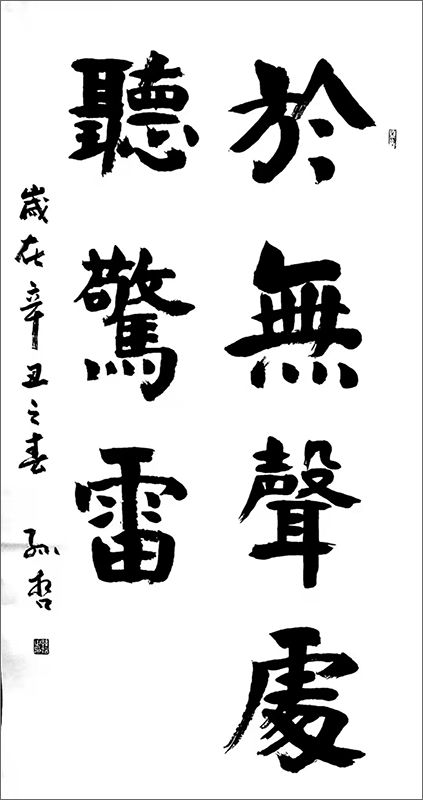 於無聲處
聽驚雷
歲在辛丑之春 孫哲